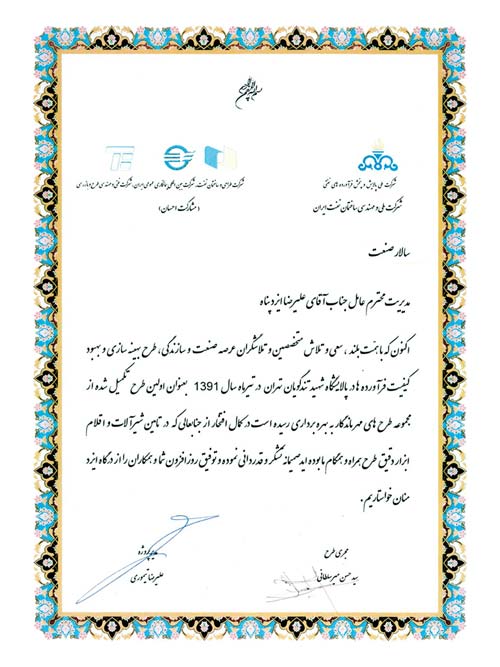 شرکت ملی پالایش و پخش فرآورده های نفتی
شرکت ملی و مهندسی ساختمان نفت ایران
شرکت طراحی و ساختمان نفت، شرکت بین المللی پیمانکاری عمومی ایران، شرکت فنی و مهندسی طرح و بازرسی
(مشارکت احسان)
سالار صنعت
مدیریت محترم عامل جناب آقای علیرضا ایزدپناه
اکنون که با همت بلند، سعی و تلاش متخصصین و تلاشگران عرصه صنعت و سازندگی، طرح بهینه سازی و بهبود
کیفیت فرآورده ها در پالایشگاه شهید تندگویان تهران در تیرماه سال 1391 بعنوان اولین طرح تکمیل شده از
مجموعه طرح های مهر ماندگار به بهره برداری رسیده است در کمال افتخار از جنابعالی که در تامین شیرآلات و اقلام
ابزار دقیق طرح همراه و همگام ما بوده اید صمیمانه تشکر و قدردانی نموده و توفیق روزافزون شما و همکاران را از درگاه ایزد
منان خواستاریم.
مجری طرح
سید حسن میرسلطانی
مدیر پروژه
علیرضا تیموری